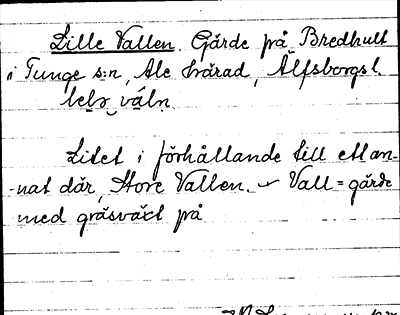 Lille Vallen. Gärde på Bredhult
i Tunge s:n, Ale härad, Älfsborgs l.
Litet i förhållande till ett an-
-nat där, Store Vallen. – Vall = gärde
med gräsväxt på